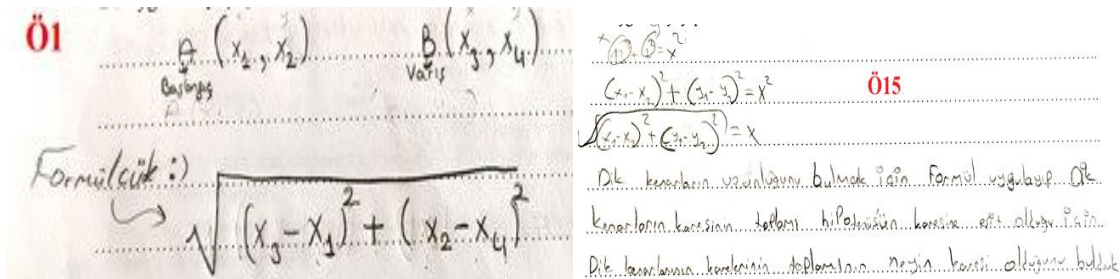 Ö1
A (x₁, x₂) B (x₃, x₄)
Başlangıç Varış
Formül(cük :)
√(x₃-x₁)² + (x₂-x₄)²
Ö15
(x₁-x₂)² + (y₁-y₂)² = x²
√(x₁-x₂)² + (y₁-y₂)² = x
Dik kenarların uzunluğunu bulmak için Formül uygulayıp Dik
kenarların karesinin toplamı hipotenüsün karesine eşit olduğu için
Dik kenarlarının karelerinin toplamının neyin karesi olduğunu bulduk